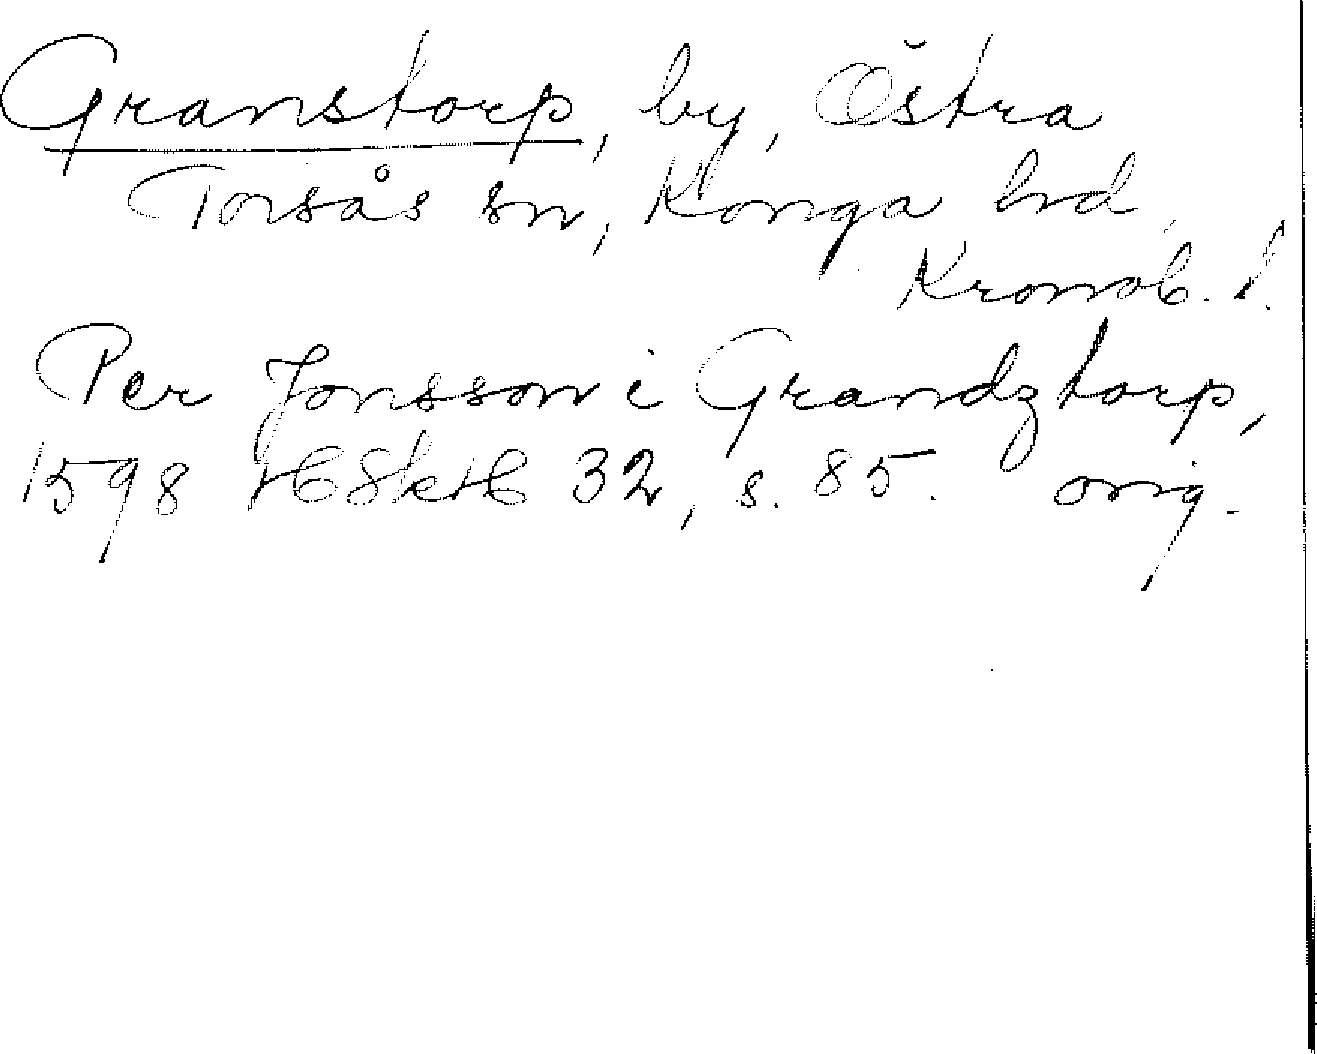 Granstorp, by, Östra
Torsås sn, Konga hd,
Kronob. l.
Per Jonsson i Grandztorp,
1598 HSkH 32, s. 85. orig.